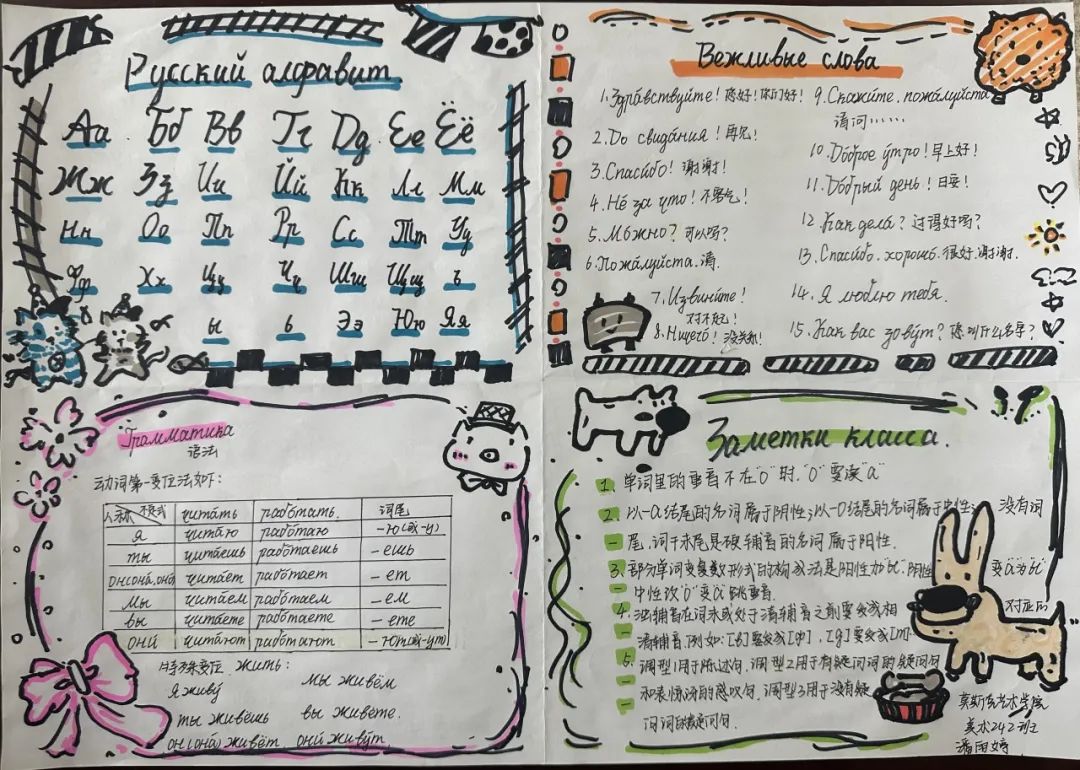 Русский алфавит
Аа Бб Вв Гг Дд Ее Ёё
Жж Зз Ии Йй Кк Лл Мм
Нн Оо Пп Рр Сс Тт Уу
Фф Хх Цц Чч Шш Щщ ъ
ы ь Ээ Юю Яя
Вежливые слова
1.Здра́вствуйте! 您好!你们好!
2.До свида́ния! 再见!
3.Спаси́бо! 谢谢!
4.Не́ за что! 不客气!
5.Мо́жно? 可以吗?
6.Пожа́луйста.请.
7.Извини́те!
对不起!
8.Ничего́! 没关系!
9.Скажи́те, пожа́луйста
请问……
10.До́брое у́тро!早上好!
11.До́брый день!日安!
12.Как дела́? 过得好吗?
13.Спаси́бо.хорошо́.很好.谢谢.
14.Я люблю тебя.
15.Как вас зову́т? 您叫什么名字?
Грамматика
语法
动词第一变位法如下:
人称 чита́ть рабо́тать 词尾
я чита́ю рабо́таю -ю(或-у)
ты чита́ешь рабо́таешь -ешь
он(она́,оно́) чита́ет рабо́тает -ет
мы чита́ем рабо́таем -ем
вы чита́ете рабо́таете -ете
они́ чита́ют рабо́тают -ют(或-ут)
特殊变位 жить:
я живу́ мы живём
ты живёшь вы живёте.
он(она́) живёт они́ живу́т.
Заметки класса.
1. 单词里的重音不在"о"时."о"要读"а"
2. 以-а结尾的名词属于阴性;以-о结尾的名词属于中性; 没有词
尾.词干末尾是硬辅音的名词属于阳性.
3. 部分单词变复数形式的构成法是阳性加"ы".阴性 变"а"为"ы"
中性改"о"变"а"跳重音.
4. 浊辅音在词末或处于清辅音之前要变成相 对应的
清辅音.例如:[б]要变成[п],[д]要变成[т]
5. 调型1用于陈述句.调型2用于有疑问词的疑问句
和表惊讶的感叹句.调型3用于没有疑
问词的疑问句.
莫斯科艺术学院
美术242班
潘雨婷